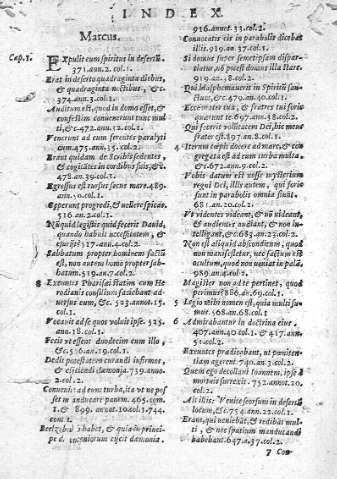 INDEX
Marcus.
Cap. 1. Expulit eum spiritus in desertũ
371. ann. 2. col. 1.
Erat in deserto quadraginta diebus,
& quadraginta noctibus, &c.
374. ann. 3. col. 1.
Auditum est, quod in domo esset, &
confestim convenerunt tunc mul
ti, &c. 472. ann. 12. col. 2.
Venerunt ad eum ferentes paralyti
cum 475. ann. 35. col. 2.
Erant quidam de scribis sedentes,
& cogitātes in cordibus suis, &c.
478. an. 39. col. 1.
Egressus est rursus secus mare. 489.
ann. 50. col. 1.
Cœperunt progredi, & vellere spicas.
516. an. 2. col. 1.
Nūquā legistis quid fecerit David,
quando habuit necessitatem, &
esurijt? 517. an. 4. col. 2.
Sabbatum propter hominem factũ
est, non autem homo propter sab-
batum. 519. an. 7. col. 2.
8 Exeuntes Pharisæi statim cum He
rodianis consilium faciebant ad-
versus eum, &c. 523. annot. 15.
col. 1.
Vocavit ad se quos voluit ipse. 525.
ann. 18. col. 1.
Fecit vt essent duodecim cum illo,
&c. 526. an. 19. col. 1.
Dedit potestatem curandi infirmos,
& eijciendi dæmonia. 739. anno.
2. col. 2.
Convenit ad eum turba, ita vt ne pos
set manducare panem. 465. com.
1. & 899. annot. 10. col. 1. 744.
com. 1.
Beelzebub habet, & quia in princi-
pe dæmoniorum eijcit dæmonia.
916. annot. 33. col. 2.
Convocatis eis in parabolis dicebat
illis. 919. an. 37. col. 1.
Si domus super semetipsam disper-
tiatur, nō potest domus illa stare.
919. an. 38. col. 2.
Qui blasphemaverit in Spiritũ san-
ctum, &c. 479. an. 40. col. 1.
Ecce mater tua, & fratres tui foris
quærunt te. 697. an. 38. col. 2.
Qui fecerit volũtatem Dei, hic meus
frater est. 897. an. 8. col. 1.
4 Iterum cœpit docere ad mare, & con
gregata est ad eum turba multa
&c. 672. ann. 9. col. 2.
Vobis datum est nosse mysterium
regni Dei, illis autem, qui foris
sunt in parabolis omnia fiunt.
68. an. 20. col. 1.
Vt videntes videant, & nō videant,
& audientes audiant, & non in-
telligant, &c. 683. an. 23. col. 2.
Non est aliquid absconditum, quod
non manifestetur, nec factum est
occultum, quod non veniat in palā.
989. an. 4. col. 1.
Magister non ad te pertinet, quod
perimus? 886. an. 69. col. 1.
5 Legio mihi nomen est, quia multi su-
mus. 568. an. 68. col. 1.
6 Admirabantur in doctrina eius.
407. ann. 40. col. 1. & 417. ann.
51. col. 2.
Exeuntes prædicabant, vt pœniten-
tiam agerent. 740. an. 3. col. 2.
Quem ego decollavi Ioannem, ipse à
mortuis surrexit. 752. annot. 20.
col. 2.
Ait illis: Venite seorsum in desertũ
locum, &c. 754. ann. 22. col. 1.
Erant, qui veniebāt, & redibāt mul-
ti, & nec spatium manducandi
habebant. 647. a. 37. col. 2.
7 Con